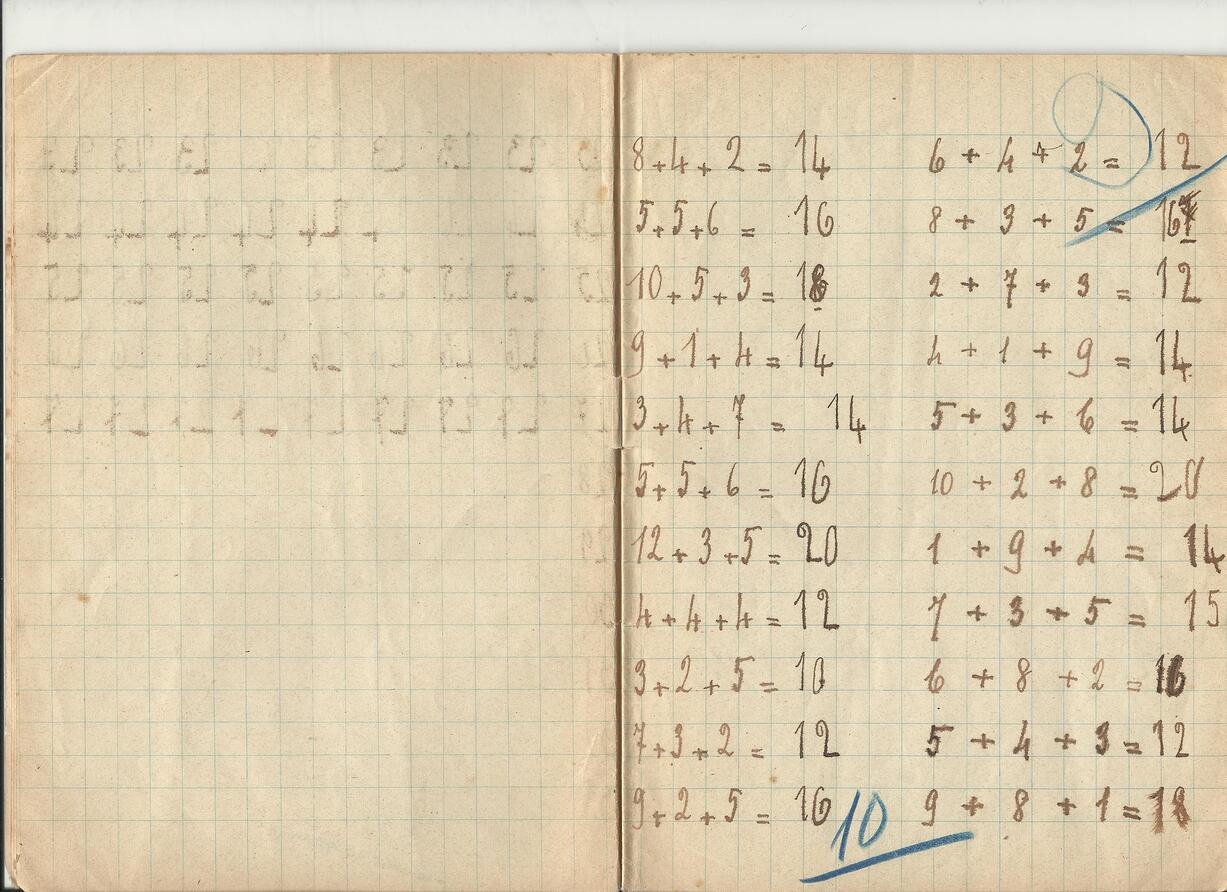 8+4+2 = 14
5+5+6 = 16
10+5+3 = 18
9+1+4 = 14
3+4+7 = 14
5+5+6 = 16
12+3+5 = 20
4+4+4 = 12
3+2+5 = 10
7+3+2 = 12
9+2+5 = 16
10
9
6 + 4 + 2 = 12
8 + 3 + 5 = 16
2 + 7 + 3 = 12
4 + 1 + 9 = 14
5 + 3 + 6 = 14
10 + 2 + 8 = 20
1 + 9 + 4 = 14
7 + 3 + 5 = 15
6 + 8 + 2 = 16
5 + 4 + 3 = 12
9 + 8 + 1 = 18